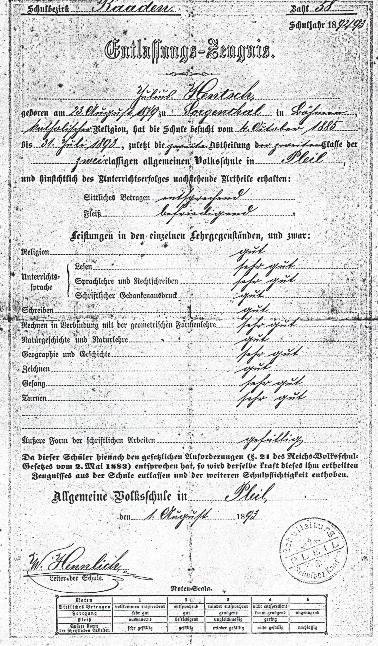 Schulbezirk Kaaden Zahl 58
Schuljahr 1892/93
Entlassungs-Zeugnis.
Julius Hentsch,
geboren am 23. August 1879 zu Sorgenthal in Böhmen
katholischer Religion, hat die Schule besucht vom 4. Oktober 1885
bis 31. Juli 1893, zuletzt die zweite Abtheilung der zweiten Classe der
zweiclassigen allgemeinen Volksschule in Pleil
und hinsichtlich des Unterrichtserfolges nachstehende Urtheile erhalten:
Sittliches Betragen entsprechend
Fleiß befriedigend
Leistungen in den einzelnen Lehrgegenständen, und zwar:
Religion gut
Unterrichts-sprache
Lesen sehr gut
Sprachlehre und Rechtschreiben sehr gut
Schriftlicher Gedankenausdruck gut
Schreiben gut
Rechnen in Verbindung mit der geometrischen Formenlehre sehr gut
Naturgeschichte und Naturlehre gut
Geographie und Geschichte sehr gut
Zeichnen gut
Gesang sehr gut
Turnen sehr gut
Äußere Form der schriftlichen Arbeiten gefällig
Da dieser Schüler hienach den gesetzlichen Anforderungen (§. 21 des Reichs-Volksschul-
Gesetzes vom 2. Mai 1883) entsprochen hat, so wird derselbe kraft dieses ihm ertheilten
Zeugnisses aus der Schule entlassen und der weiteren Schulpflichtigkeit enthoben.
Allgemeine Volksschule in Pleil
den 1. August 1893
W. Hennlich
Leiter der Schule.
PLEIL
Noten-Scala.
Noten 1 2 3 4 5
Sittliches Betragen vollkommen entsprechend entsprechend minder entsprechend nicht entsprechend
Fortgang sehr gut gut genügend kaum genügend ungenügend
Fleiß ausdauernd befriedigend ungleichmäßig gering
Äußere Form der schriftlichen Arbeiten sehr gefällig gefällig minder gefällig nicht gefällig nachlässig